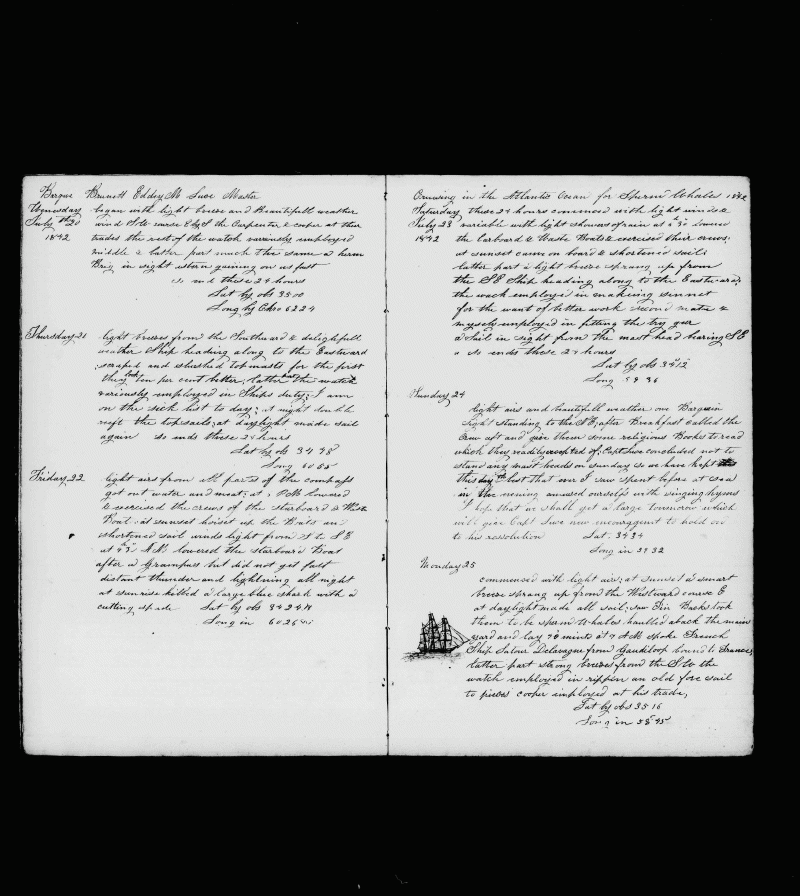 Barque Brunett Eddey M Luce Master
Wensday began with light breese and Beautifull weather
July th 20 wind SW course EbyS the Carpenter & cooper at their
1842 trades the rest of the watch variously employed
middle & latter part much the same a herm
Brig in sight astern gaining on us fast
so end these 24 hours
Lat by obs 35 00
Long by Chro 62 24
Thursday 21 light breeses from the Southward & delightfull
weather Ship heading along to the Eastward
scraped and slushed topmasts for the first
thing look ten per cent better, latter part the watch
variously employed in Ships duty; I am
on the sick list to day; at night double
reeft the topsails; at daylight made sail
again so ends these 24 hours
Lat by obs 34 48
Long 60 55
Friday 22 light airs from all parts of the compass
got out water and meat; at PM lowered
& exercised the crews of the starboard & Wast
Boat; at sunset hoiset up the Boats an
shortened sail winds light from S to SE
at AM lowered the starboard Boat
after a Grampus but did not get fast
distant thunder and lightning all night
at sunrise killed a large blue shark with a
cutting spade Lat by obs 34 24 N
Long in 60 26
Cruising in the Atlantic Ocean for Sperm Whales 1842
Saturday these 24 hours commenced with light winds &
July 23 variable with light showers of rain at lowered
1842 the Larboard & Waste Boats & exercised their crews;
at sunset came on board & shortened sail;
latter part a light breese sprang up from
the SE Ship heading along to the Eastward;
the wach employed in making sinnet
for the want of better work second mate &
myself employed in fitting the try geer
a Sail in sight from the mast head bearing SE
so ends these 24 hours
Lat by obs 34 12
Long 59 36
Sunday 24
light airs and beautifull weather our Barque in
sight standing to the SE; after Breakfast called the
Crew aft and give them some religious Books to read
which they readily excepted of; Capt Luce concluded not to
stand any mast heads on sunday so we have kept
this day the first that ever I saw spent before at sea
in the evening amused ourselfs with singing hymns
I hope that we shall get a large tomorrow which
will give Capt Luce new incouragment to hold on
to his ressolution Lat 34 34
Long in 59 32
Monday 25
commenced with light airs; at sunset a smart
breese sprang up from the Westward course E
at daylight made all sail; saw Fin Backs took
them to be sperm Whales haulled aback the main
yard and lay 20 minits at 7 AM spoke French
Ship Latour Delavague from Gaudiloop bound to France,
latter part strong breeses from the SW the
watch employed in rippen an old fore sail
to pieces cooper employed at his trade,
Lat by obs 35 16
Long in 58 45